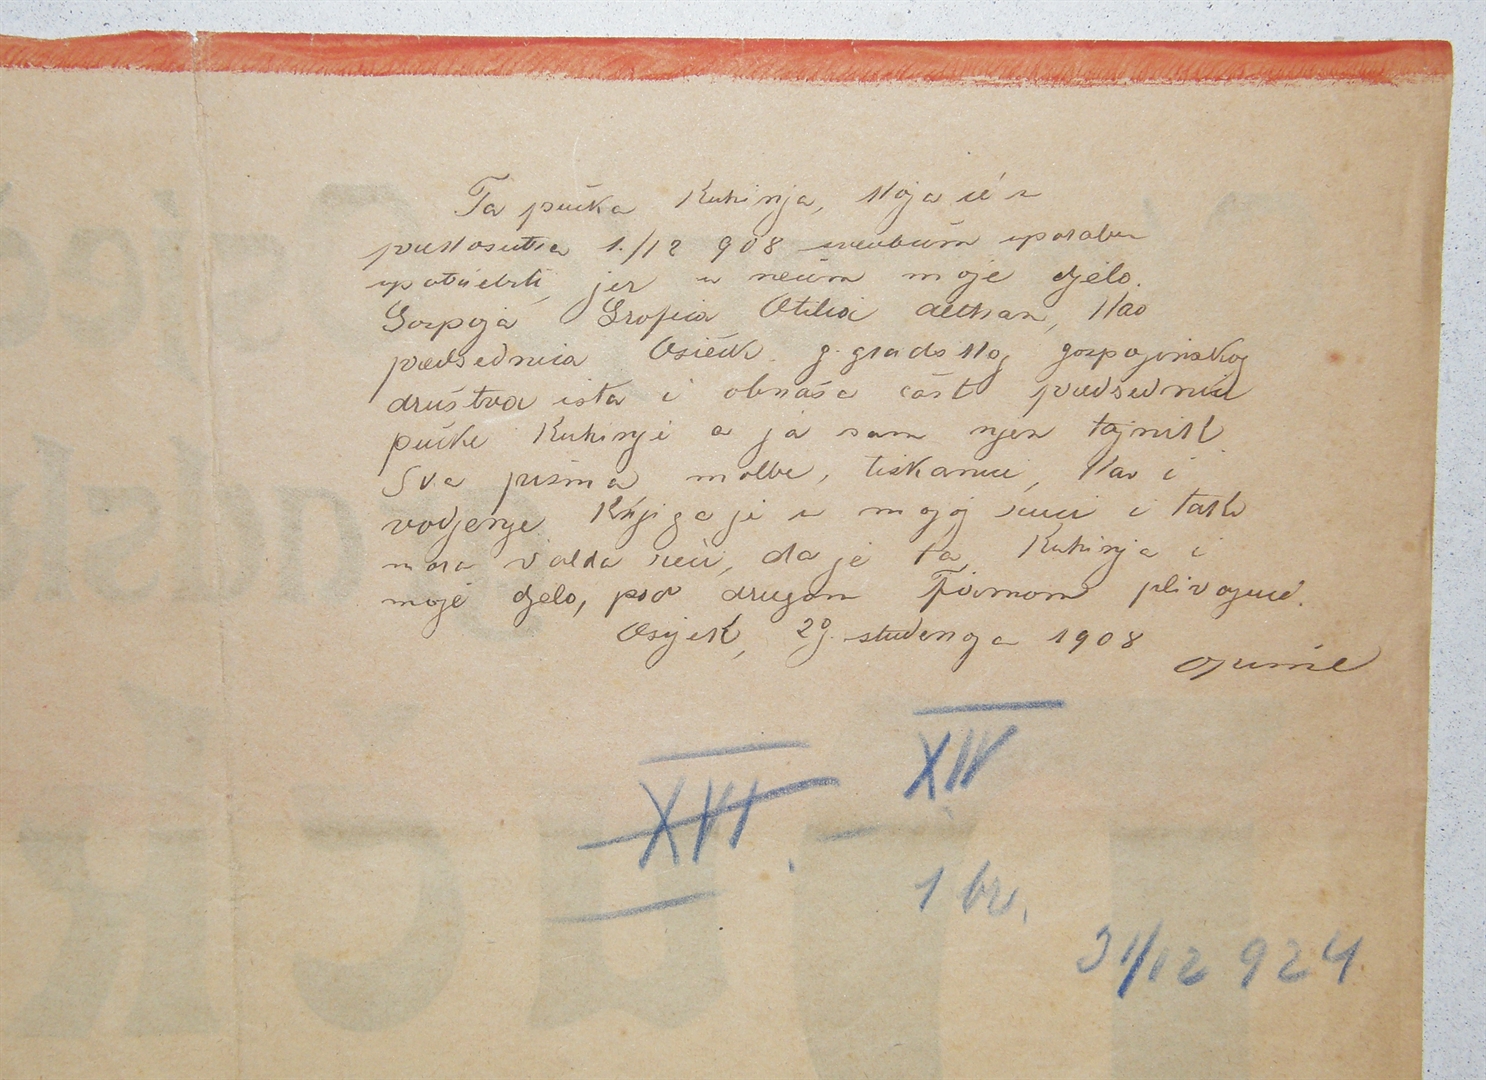 Ta pučka Kuhinja, koja će s
1./12 908 uporabu
upotriebiti, jer u nećem moje djelo.
Gospoja Grofica Otilia kao
predsednica Osiečk. g. gradskog gospojinskog
društva ista i obnaša čast predsednice
pučke Kuhinje a ja sam njen tajnik
Sva pisma molbe, tiskanice, kao i
vodjenje Knjiga je u mojoj ruci i tako
mora valda reći, da je ta Kuhinja i
moje djelo, pod drugom Firmom plivajuće.
Osijek, 29. studenoga 1908
XVI.
XIV
1 br.
31/12 924